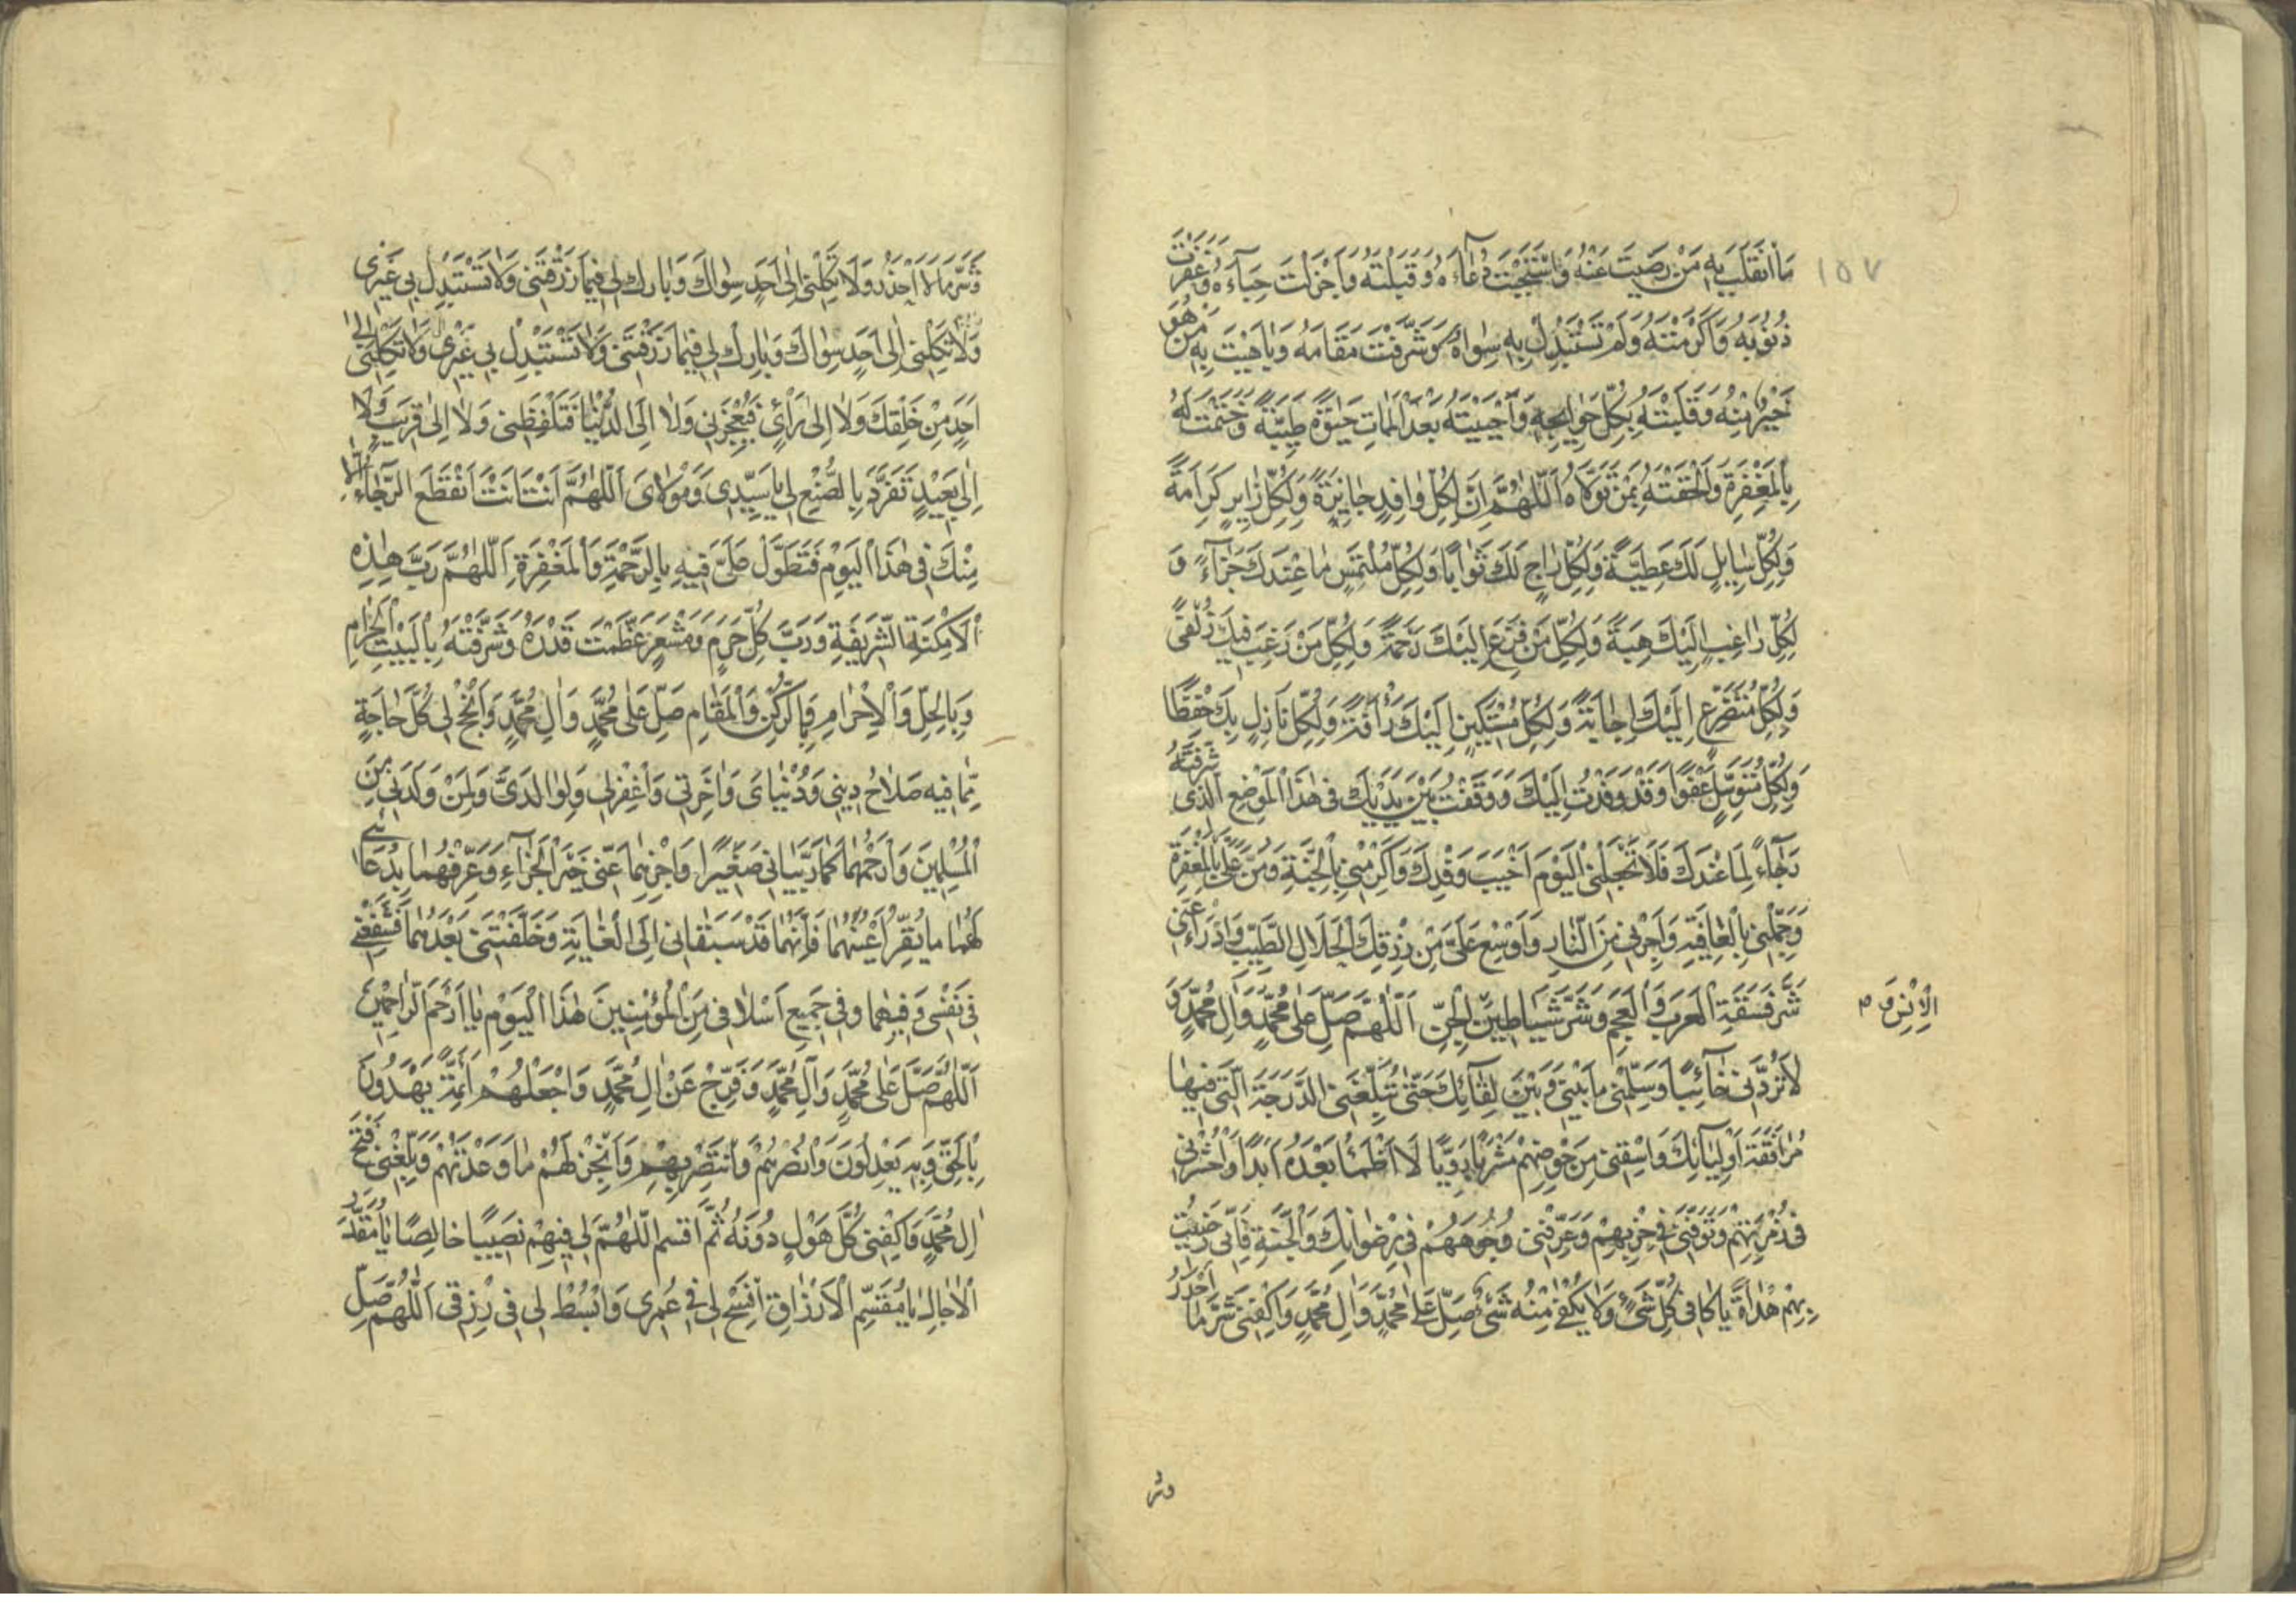 ١٥٧
مَا انْقَلَبَ بِهِ مَنْ رَضِيتَ عَنْهُ وَاسْتَجَبْتَ دُعَاءَهُ وَقَبِلْتَهُ وَاَجْزَلْتَ حِبَاءَهُ وَغَفَرْتَ
ذُنُوبَهُ وَاَكْرَمْتَهُ وَلَمْ تَسْتَبْدِلْ بِهِ سِوَاهُ وَشَرَّفْتَ مَقَامَهُ وَبَاهَيْتَ بِهِ مَنْ هُوَ
خَيْرٌ مِنْهُ وَقَلَبْتَهُ بِكُلِّ حَوَائِجِهِ وَاَحْيَيْتَهُ بَعْدَ الْمَمَاتِ حَيٰوةً طَيِّبَةً وَخَتَمْتَ لَهُ
بِالْمَغْفِرَةِ وَاَلْحَقْتَهُ بِمَنْ تَوَلَّاهُ اَللّٰهُمَّ اِنَّ لِكُلِّ وَافِدٍ جَائِزَةً وَلِكُلِّ زَايِرٍ كَرَامَةً
وَلِكُلِّ سَايِلٍ لَكَ عَطِيَّةً وَلِكُلِّ رَاجٍ لَكَ ثَوَابًا وَلِكُلِّ مُلْتَمِسٍ مَا عِنْدَكَ جَزَاءً وَ
لِكُلِّ رَاغِبٍ اِلَيْكَ هِبَةً وَلِكُلِّ مَنْ فَزِعَ اِلَيْكَ رَحْمَةً وَلِكُلِّ مَنْ رَغِبَ فِيكَ زُلْفًى
وَلِكُلِّ مُتَضَرِّعٍ اِلَيْكَ اِجَابَةً وَلِكُلِّ مُسْتَكِينٍ اِلَيْكَ رَأْفَةً وَلِكُلِّ نَازِلٍ بِكَ حِفْظًا
وَلِكُلِّ مُتَوَسِّلٍ عَفْوًا وَقَدْ وَفَدْتُ اِلَيْكَ وَوَقَفْتُ بَيْنَ يَدَيْكَ فِى هٰذَا الْمَوْضِعِ الَّذِى شَرَّفْتَهُ
رَجَاءً لِمَا عِنْدَكَ فَلَا تَجْعَلْنِى الْيَوْمَ اَخْيَبَ وَفْدِكَ وَاَكْرِمْنِى بِالْجَنَّةِ وَمُنَّ عَلَىَّ بِالْمَغْفِرَةِ
وَجَمِّلْنِى بِالْعَافِيَةِ وَاَجِرْنِى مِنَ النَّارِ وَاَوْسِعْ عَلَىَّ مِنْ رِزْقِكَ الْحَلَالِ الطَّيِّبِ وَادْرَأْ عَنِّى
شَرَّ فَسَقَةِ الْعَرَبِ وَالْعَجَمِ وَشَرَّ شَيَاطِينِ الْجِنِّ اَللّٰهُمَّ صَلِّ عَلَى مُحَمَّدٍ وَاٰلِ مُحَمَّدٍ وَ
الْاِنْسِ وَ م
لَا تَرُدَّنِى خَائِبًا وَسَلِّمْنِى مَا بَيْنِى وَبَيْنَ لِقَائِكَ حَتّٰى تُبَلِّغَنِى الدَّرَجَةَ الَّتِى فِيهَا
مُرَافَقَةُ اَوْلِيَائِكَ وَاسْقِنِى مِنْ حَوْضِهِمْ مَشْرَبًا رَوِيًّا لَا اَظْمَأُ بَعْدَهُ اَبَدًا وَاحْشُرْنِى
فِى زُمْرَتِهِمْ وَتَوَفَّنِى فِى حِزْبِهِمْ وَعَرِّفْنِى وُجُوهَهُمْ فِى رِضْوَانِكَ وَالْجَنَّةِ فَاِنِّى رَضِيتُ
بِهِمْ هُدَاةً يَا كَافِىَ كُلِّ شَىْءٍ وَلَا يَكْفِى مِنْهُ شَىْءٌ صَلِّ عَلَى مُحَمَّدٍ وَاٰلِ مُحَمَّدٍ وَاكْفِنِى شَرَّ مَا اَحْذَرُ
وشر
وَشَرَّ مَا لَا اَحْذَرُ وَلَا تَكِلْنِى اِلٰى اَحَدٍ سِوَاكَ وَبَارِكْ لِى فِيمَا رَزَقْتَنِى وَلَا تَسْتَبْدِلْ بِى غَيْرِى
وَلَا تَكِلْنِى اِلٰى اَحَدٍ سِوَاكَ وَبَارِكْ لِى فِيمَا رَزَقْتَنِى وَلَا تَسْتَبْدِلْ بِى غَيْرِى وَلَا تَكِلْنِى اِلٰى
اَحَدٍ مِنْ خَلْقِكَ وَلَا اِلٰى رَأْيِى فَيُعْجِزَنِى وَلَا اِلَى الدُّنْيَا فَتَلْفِظَنِى وَلَا اِلٰى قَرِيبٍ وَلَا
اِلٰى بَعِيدٍ تَفَرَّدْ بِالصُّنْعِ لِى يَا سَيِّدِى وَمَوْلَاىَ اَللّٰهُمَّ اَنْتَ اَنْتَ اَنْقَطَعَ الرَّجَاءُ اِلَّا
مِنْكَ فِى هٰذَا الْيَوْمِ فَتَطَوَّلْ عَلَىَّ فِيهِ بِالرَّحْمَةِ وَالْمَغْفِرَةِ اَللّٰهُمَّ رَبَّ هٰذِهِ
الْاَمْكِنَةِ الشَّرِيفَةِ وَرَبَّ كُلِّ حَرَمٍ وَمَشْعَرٍ عَظَّمْتَ قَدْرَهُ وَشَرَّفْتَهُ بِالْبَيْتِ الْحَرَامِ
وَبِالْحِلِّ وَالْاِحْرَامِ وَبِالرُّكْنِ وَالْمَقَامِ صَلِّ عَلٰى مُحَمَّدٍ وَاٰلِ مُحَمَّدٍ وَاَنْجِحْ لِى كُلَّ حَاجَةٍ
مِمَّا فِيهِ صَلَاحُ دِينِى وَدُنْيَاىَ وَاٰخِرَتِى وَاغْفِرْلِى وَلِوَالِدَىَّ وَلِمَنْ وَلَدَنِى مِنَ
الْمُسْلِمِينَ وَارْحَمْهُمَا كَمَا رَبَّيَانِى صَغِيرًا وَاجْزِهِمَا عَنِّى خَيْرَ الْجَزَاءِ وَعَرِّفْهُمَا بِدُعَائِى
لَهُمَا مَا يُقِرُّ اَعْيُنَهُمَا فَاِنَّهُمَا قَدْ سَبَقَانِى اِلَى الْغَايَةِ وَخَلَّفْتَنِى بَعْدَهُمَا فَشَفِّعْنِى
فِى نَفْسِى وَفِيهِمَا وَفِى جَمِيعِ اَسْلَافِى مِنَ الْمُؤْمِنِينَ هٰذَا الْيَوْمِ يَا اَرْحَمَ الرَّاحِمِينَ
اَللّٰهُمَّ صَلِّ عَلٰى مُحَمَّدٍ وَآلِ مُحَمَّدٍ وَفَرِّجْ عَنْ اٰلِ مُحَمَّدٍ وَاجْعَلْهُمْ اَئِمَّةً يَهْدُونَ
بِالْحَقِّ وَبِهِ يَعْدِلُونَ وَانْصُرْهُمْ وَانْتَصِرْ بِهِمْ وَاَنْجِزْ لَهُمْ مَا وَعَدْتَهُمْ وَبَلِّغْنِى فَتْحَ
اٰلِ مُحَمَّدٍ وَاكْفِنِى كُلَّ هَوْلٍ دُونَهُ ثُمَّ اقْسِمِ اللّٰهُمَّ لِى فِيهِمْ نَصِيبًا خَالِصًا يَا مُقَدِّرَ
الْاٰجَالِ يَا مُقَسِّمَ الْاَرْزَاقِ افْسَحْ لِى فِى عُمْرِى وَابْسُطْ لِى فِى رِزْقِى اَللّٰهُمَّ صَلِّ